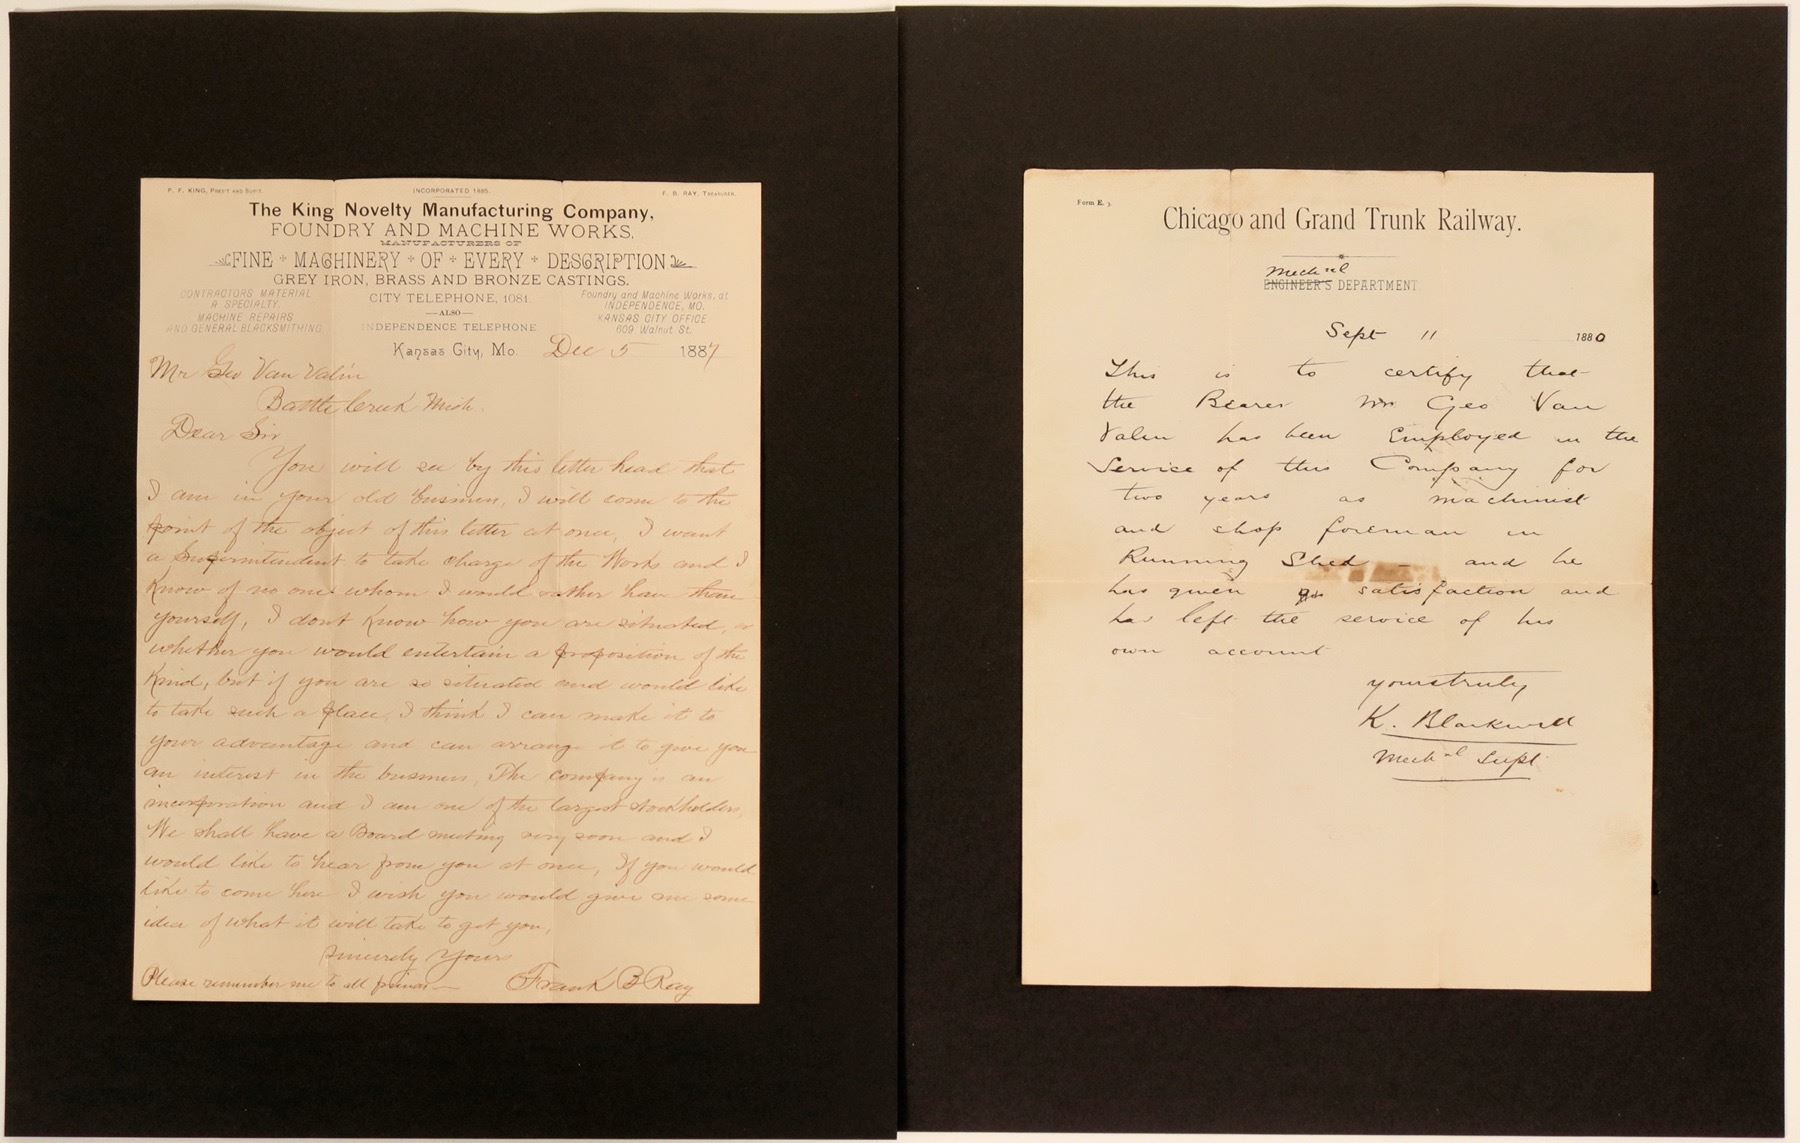 P. F. KING, PRES'T AND SUP'T.
INCORPORATED 1885.
F. B. RAY, TREASURER.
The King Novelty Manufacturing Company,
FOUNDRY AND MACHINE WORKS,
MANUFACTURERS OF
FINE + MACHINERY + OF + EVERY + DESCRIPTION
GREY IRON, BRASS AND BRONZE CASTINGS.
CONTRACTORS MATERIAL
A SPECIALTY.
MACHINE REPAIRS
AND GENERAL BLACKSMITHING.
CITY TELEPHONE, 1081.
—ALSO—
INDEPENDENCE TELEPHONE
Foundry and Machine Works, at
INDEPENDENCE, MO.
KANSAS CITY OFFICE
609 Walnut St.
Kansas City, Mo. Dec 5 1887
Mr Geo Van Valin
Battle Creek Mich.
Dear Sir
You will see by this letter head that
I am in your old business, I will come to the
point of the object of this letter at once, I want
a Superintendent to take charge of the Works and I
know of no one whom I would rather have than
yourself, I dont know how you are situated, or
whether you would entertain a proposition of the
kind, but if you are so situated and would like
to take such a place, I think I can make it to
your advantage and can arrange it to give you
an interest in the business, The company is an
incorporation and I am one of the largest stockholders,
We shall have a Board meeting very soon and I
would like to hear from you at once, If you would
like to come here I wish you would give me some
idea of what it will take to get you,
Sincerely Yours
Please remember me to all
Frank B Ray
Form E. 3.
Chicago and Grand Trunk Railway.
Mechcl
ENGINEER'S DEPARTMENT
Sept 11 1880
This is to certify that
the Bearer Mr Geo Van
Valin has been Employed in the
Service of this Company for
two years as machinist
and shop foreman in
Running Shed — and he
has given satisfaction and
has left the service of his
own account
yours truly
K. Blackwell
Mechcl Supt